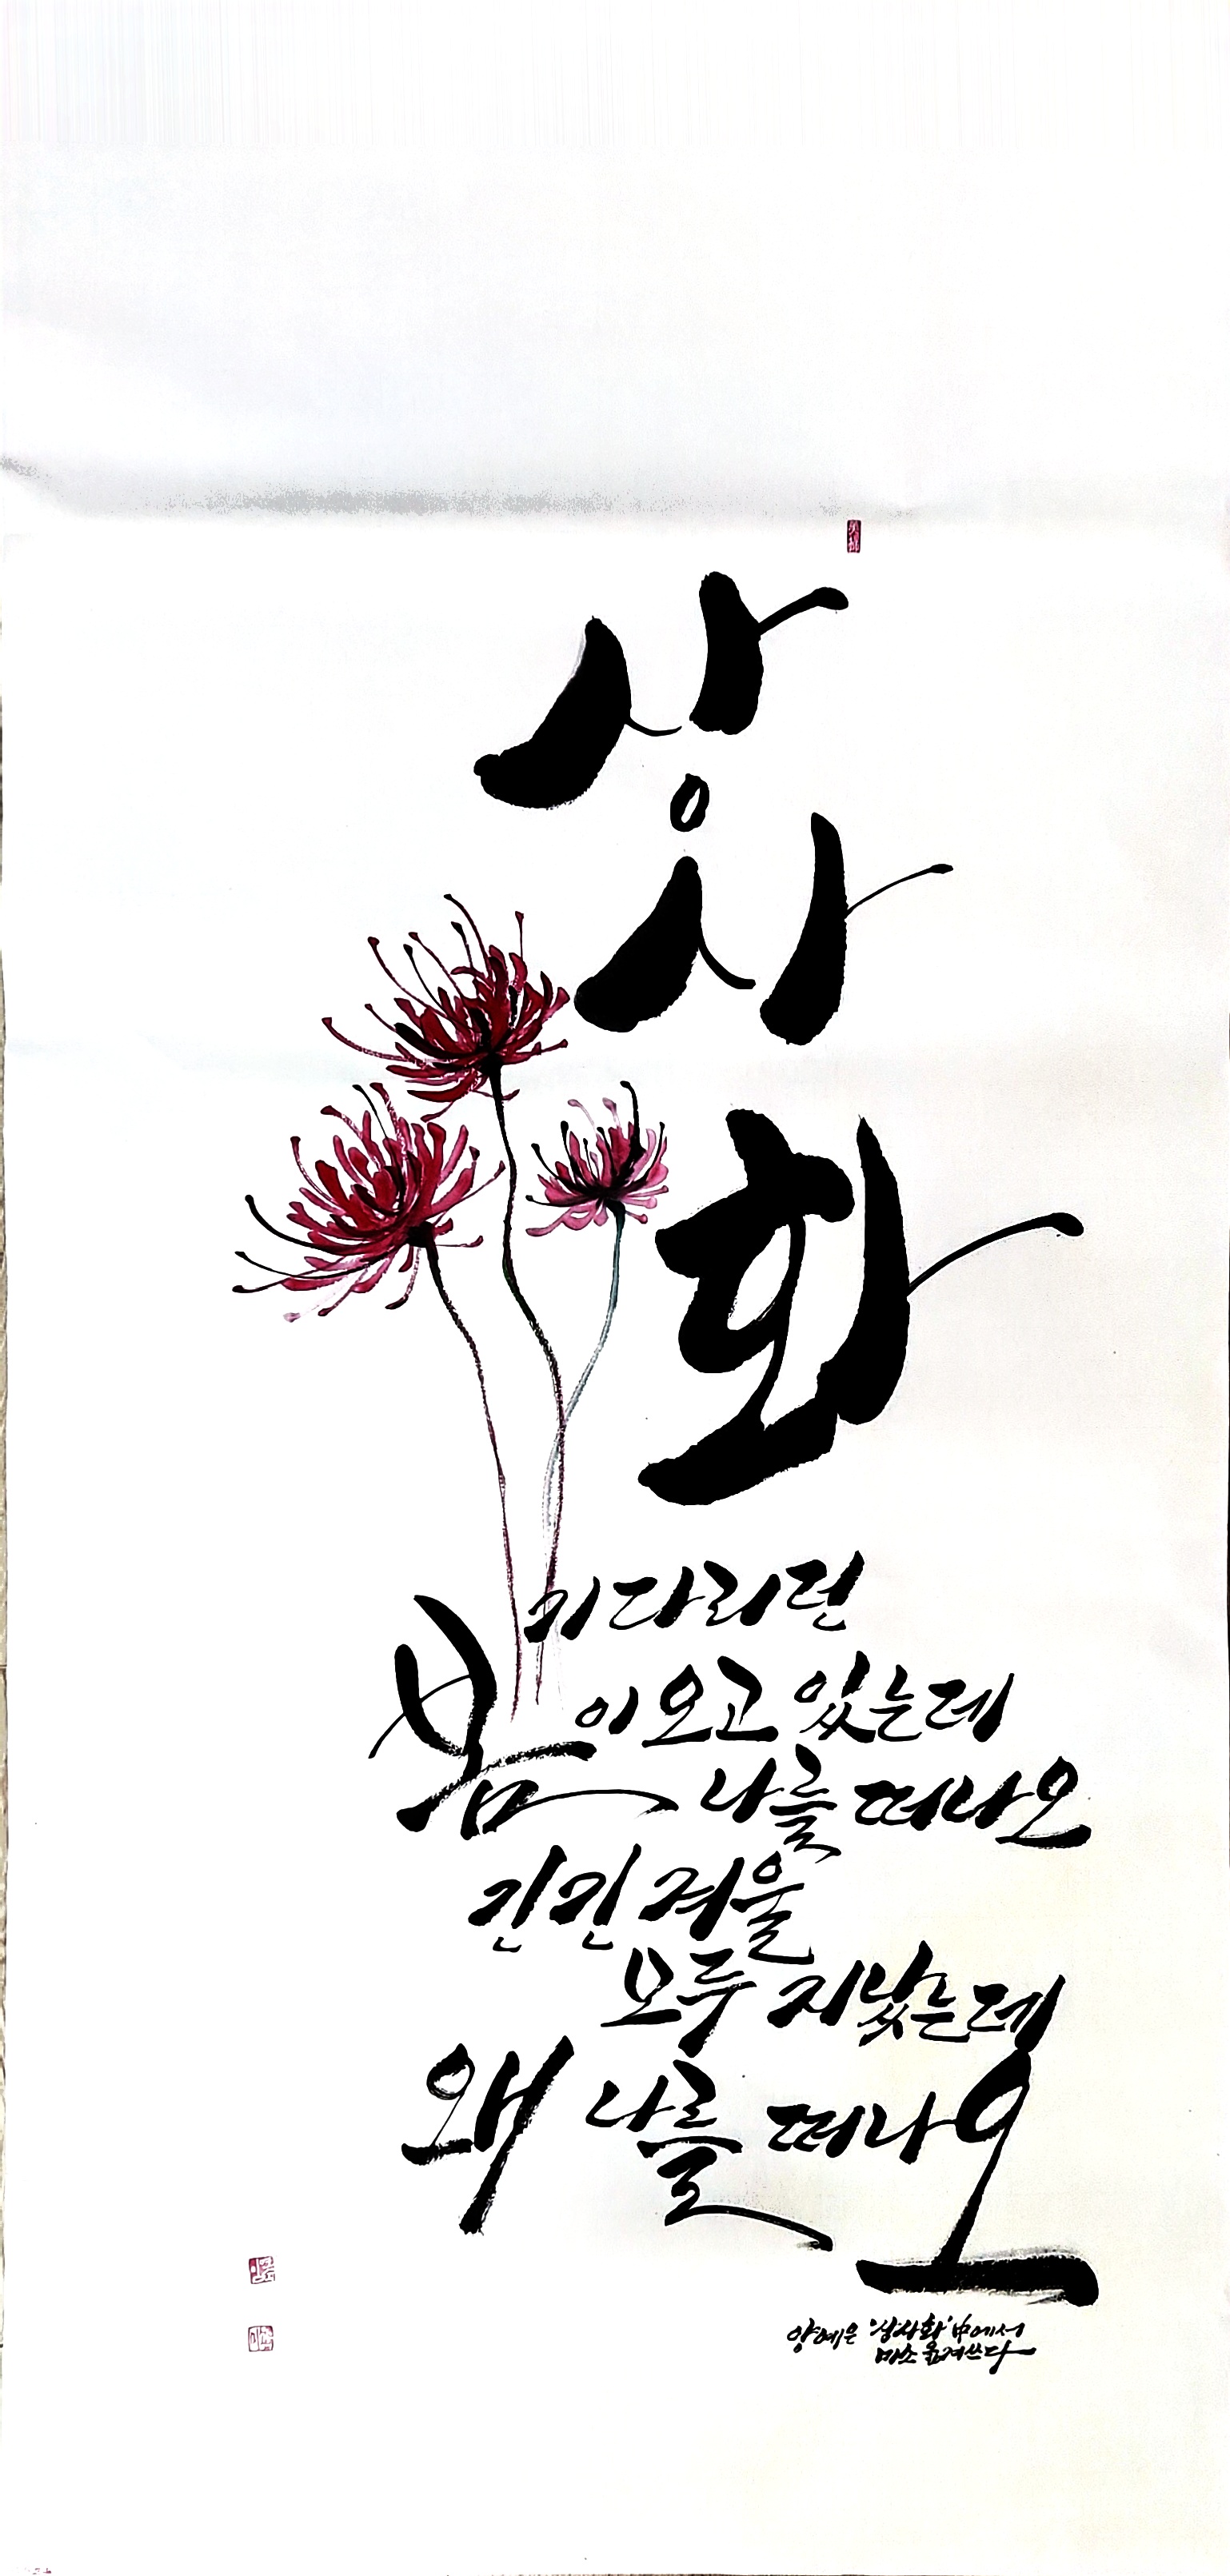 상사화
기다리던
봄이 오고 있는데
나를 떠나오
긴긴 겨울
모두 지났는데
왜 나를 떠나오
양예은 '상사화' 中에서
미소 옮겨쓰다